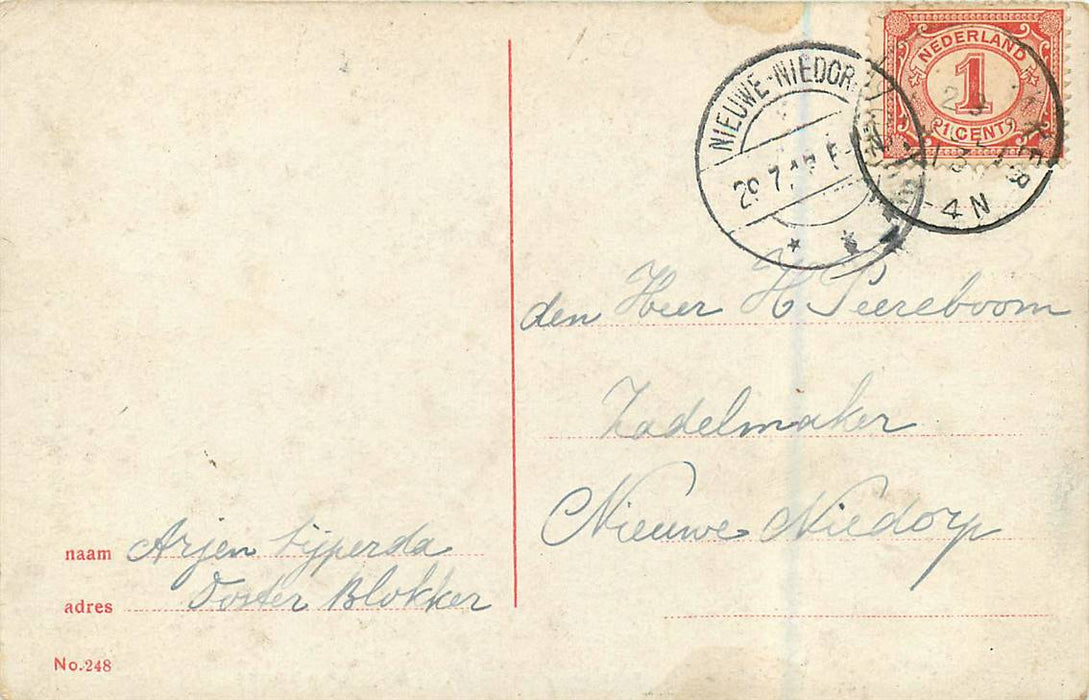 NEDERLAND
1
1 CENT
NIEUWE-NIEDOR
29.7
4 N
den Heer H Peereboom
Zadelmaker
Nieuwe Niedorp
naam Arjen Sijperda
adres Ooster Blokker
No.248